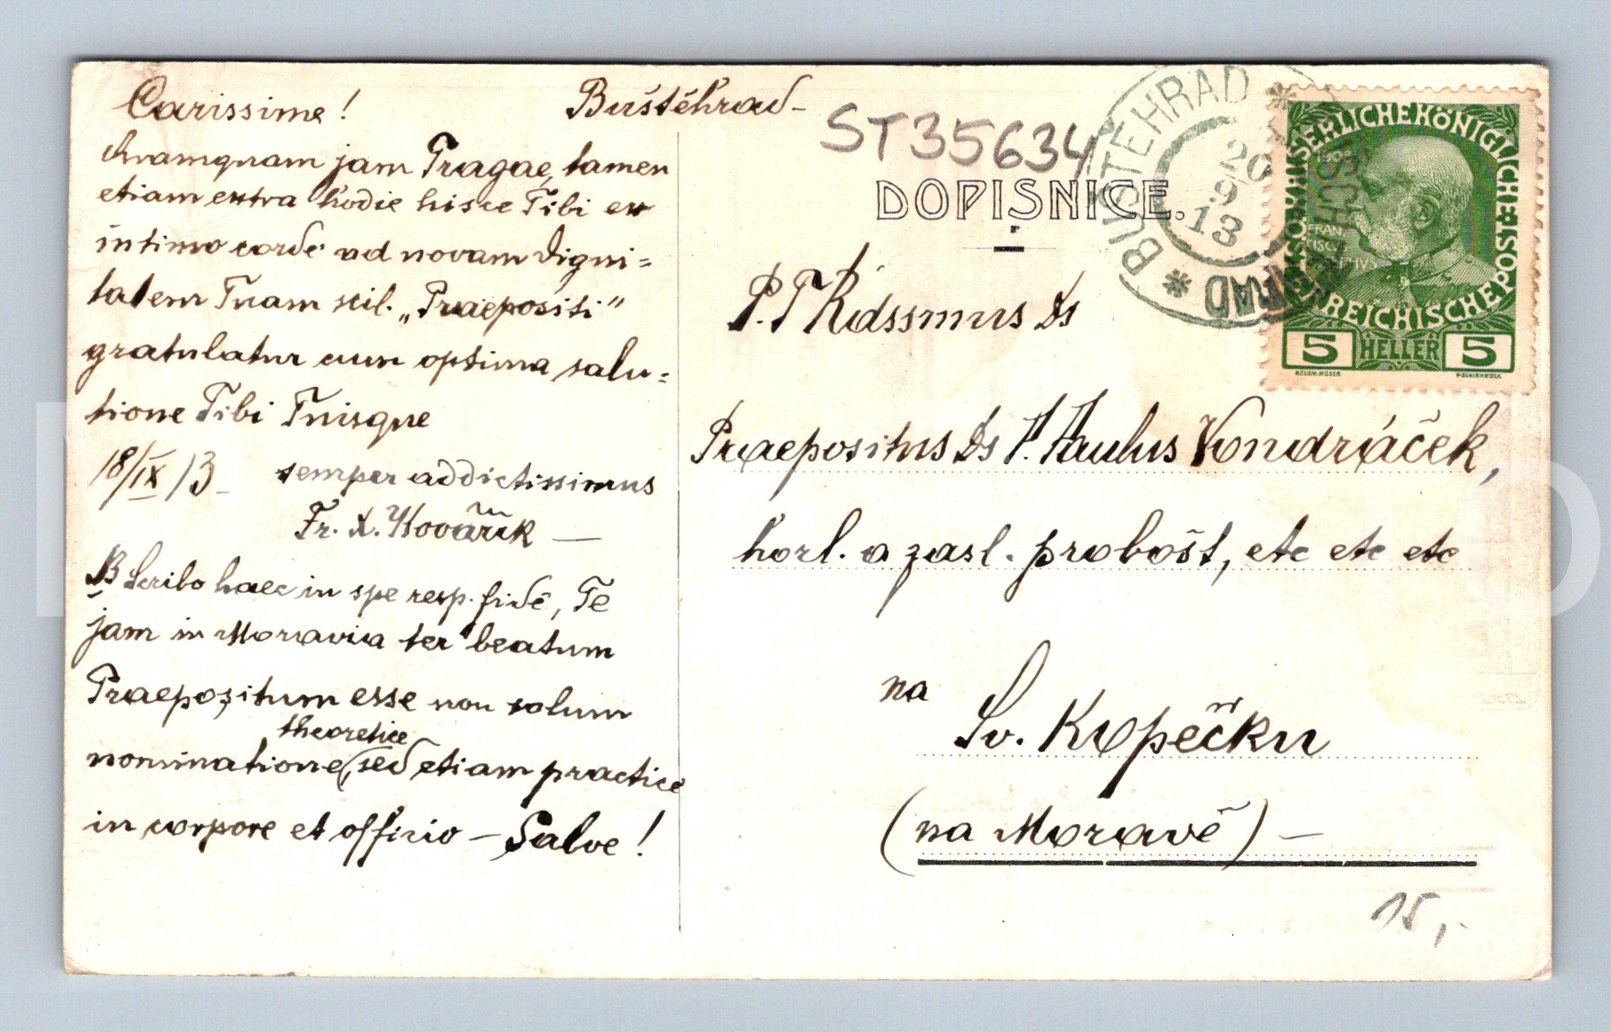 Carissime! Buštěhrad-
Quamquam jam Pragae, tamen
etiam extra hodie hisce Tibi ex
intimo corde ad novam digni=
tatem Tuam scil. „Praepositi"
gratulatur cum optima salu=
tione Tibi Tuisque
18/IX 13 semper addictissimus
Fr. X. Kovářík —
NB Scribo haec in spe resp. fide, Te
jam in Moravia ter beatum
Praepositum esse non solum
theoretice
nominatione, sed etiam practice
in corpore et officio — Salve!
ST35634
DOPISNICE.
P. T Rdssmus Ds
Praepositus Ds P. Paulus Vondráček,
horl. a zasl. probošt, etc etc etc
na
Sv. Kopečku
(na Moravě) —
15,-
BUŠTĚHRAD
20
9
13
KAISERLICHE KÖNIGLICHE
ÖSTERREICHISCHE POST
1908
FRAN
CISCVS
IOSEPHVS
5 HELLER 5
KOLOM. MOSER
F. SCHIRNBÖCK